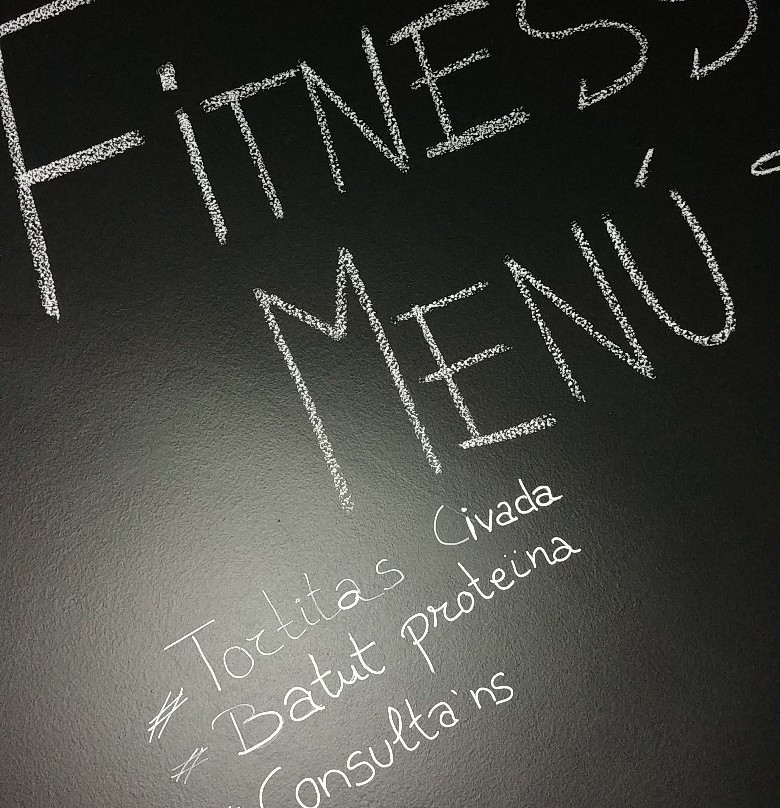 FiTNESS
MENÚ
# Tortitas Civada
# Batut proteïna
# Consulta'ns